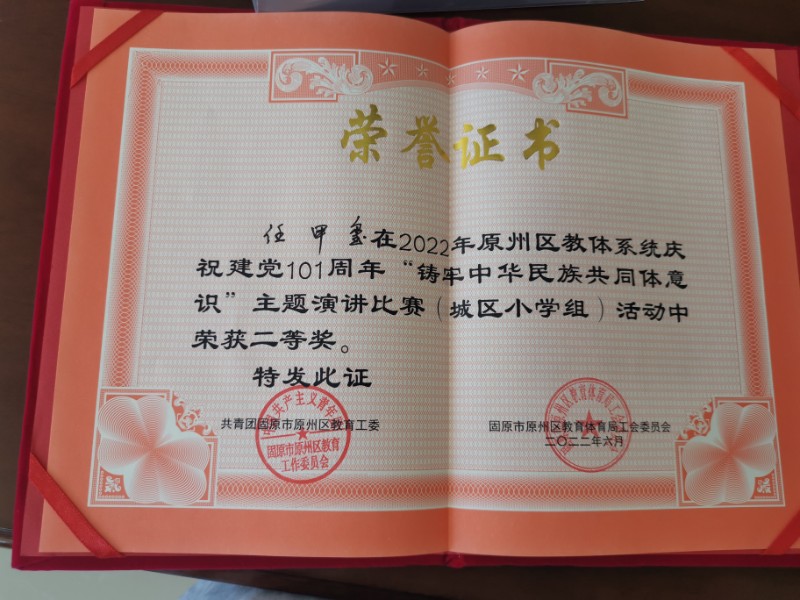 荣誉证书
任甲玺在2022年原州区教体系统庆
祝建党101周年“铸牢中华民族共同体意
识”主题演讲比赛（城区小学组）活动中
荣获二等奖。
特发此证
共青团固原市原州区教育工委
固原市原州区教育体育局工会委员会
二〇二二年六月
固原市原州区教育
工作委员会